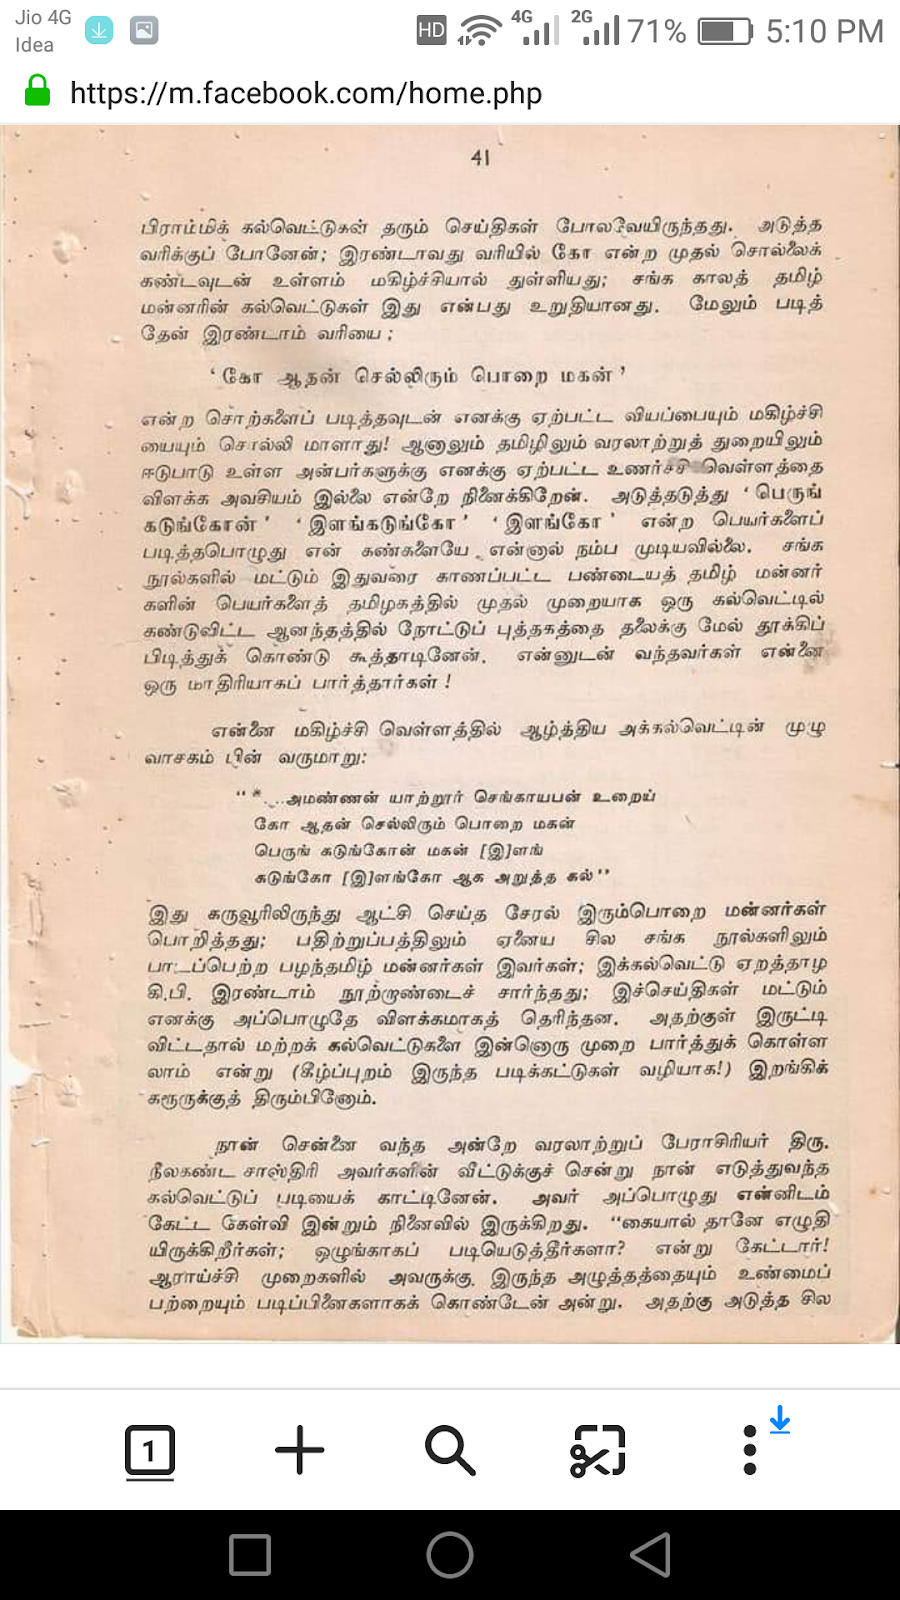 Jio 4G
Idea
HD
4G
2G
71%
5:10 PM
https://m.facebook.com/home.php
41
பிராம்மிக் கல்வெட்டுகள் தரும் செய்திகள் போலவேயிருந்தது. அடுத்த
வரிக்குப் போனேன்; இரண்டாவது வரியில் கோ என்ற முதல் சொல்லைக்
கண்டவுடன் உள்ளம் மகிழ்ச்சியால் துள்ளியது; சங்க காலத் தமிழ்
மன்னரின் கல்வெட்டுகள் இது என்பது உறுதியானது. மேலும் படித்
தேன் இரண்டாம் வரியை ;
‘ கோ ஆதன் செல்லிரும் பொறை மகன் ’
என்ற சொற்களைப் படித்தவுடன் எனக்கு ஏற்பட்ட வியப்பையும் மகிழ்ச்சி
யையும் சொல்லி மாளாது! ஆனாலும் தமிழிலும் வரலாற்றுத் துறையிலும்
ஈடுபாடு உள்ள அன்பர்களுக்கு எனக்கு ஏற்பட்ட உணர்ச்சி வெள்ளத்தை
விளக்க அவசியம் இல்லை என்றே நினைக்கிறேன். அடுத்தடுத்து ‘ பெருங்
கடுங்கோன் ’ ‘ இளங்கடுங்கோ ’ ‘ இளங்கோ ’ என்ற பெயர்களைப்
படித்தபொழுது என் கண்களையே என்னால் நம்ப முடியவில்லை. சங்க
நூல்களில் மட்டும் இதுவரை காணப்பட்ட பண்டையத் தமிழ் மன்னர்
களின் பெயர்களைத் தமிழகத்தில் முதல் முறையாக ஒரு கல்வெட்டில்
கண்டுவிட்ட ஆனந்தத்தில் நோட்டுப் புத்தகத்தை தலைக்கு மேல் தூக்கிப்
பிடித்துக் கொண்டு கூத்தாடினேன். என்னுடன் வந்தவர்கள் என்னை
ஒரு மாதிரியாகப் பார்த்தார்கள் !
என்னை மகிழ்ச்சி வெள்ளத்தில் ஆழ்த்திய அக்கல்வெட்டின் முழு
வாசகம் பின் வருமாறு:
“ *...அமண்ணன் யாற்றூர் செங்காயபன் உறைய்
கோ ஆதன் செல்லிரும் பொறை மகன்
பெருங் கடுங்கோன் மகன் [இ]ளங்
கடுங்கோ [இ]ளங்கோ ஆக அறுத்த கல்”
இது கருவூரிலிருந்து ஆட்சி செய்த சேரல் இரும்பொறை மன்னர்கள்
பொறித்தது; பதிற்றுப்பத்திலும் ஏனைய சில சங்க நூல்களிலும்
பாடப்பெற்ற பழந்தமிழ் மன்னர்கள் இவர்கள்; இக்கல்வெட்டு ஏறத்தாழ
கி.பி. இரண்டாம் நூற்றாண்டைச் சார்ந்தது; இச்செய்திகள் மட்டும்
எனக்கு அப்பொழுதே விளக்கமாகத் தெரிந்தன. அதற்குள் இருட்டி
விட்டதால் மற்றக் கல்வெட்டுகளை இன்னொரு முறை பார்த்துக் கொள்ள
லாம் என்று (கீழ்ப்புறம் இருந்த படிக்கட்டுகள் வழியாக!) இறங்கிக்
கரூருக்குத் திரும்பினோம்.
நான் சென்னை வந்த அன்றே வரலாற்றுப் பேராசிரியர் திரு.
நீலகண்ட சாஸ்திரி அவர்களின் வீட்டுக்குச் சென்று நான் எடுத்துவந்த
கல்வெட்டுப் படியைக் காட்டினேன். அவர் அப்பொழுது என்னிடம்
கேட்ட கேள்வி இன்றும் நினைவில் இருக்கிறது. “கையால் தானே எழுதி
யிருக்கிறீர்கள்; ஒழுங்காகப் படியெடுத்தீர்களா? என்று கேட்டார்!
ஆராய்ச்சி முறைகளில் அவருக்கு இருந்த அழுத்தத்தையும் உண்மைப்
பற்றையும் படிப்பினைகளாகக் கொண்டேன் அன்று. அதற்கு அடுத்த சில
1